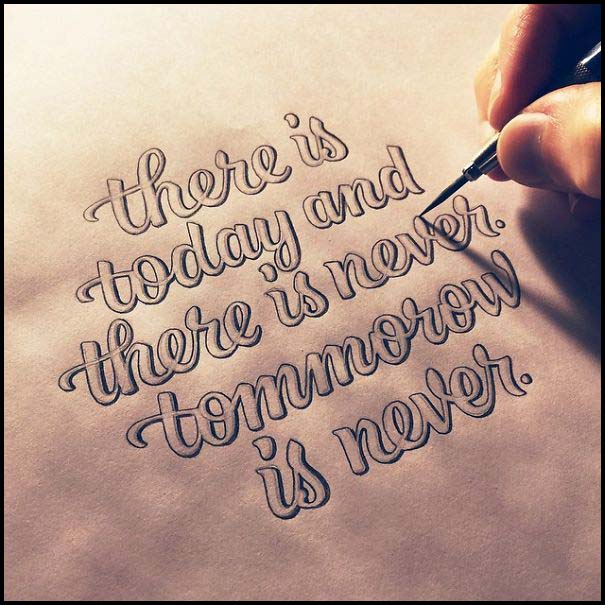 there is
today and
there is never.
tommorow
is never.